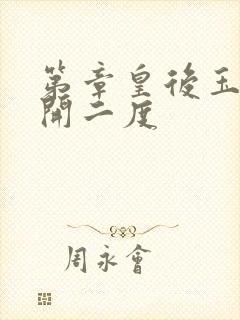 第章皇後玉
開二度
周永會